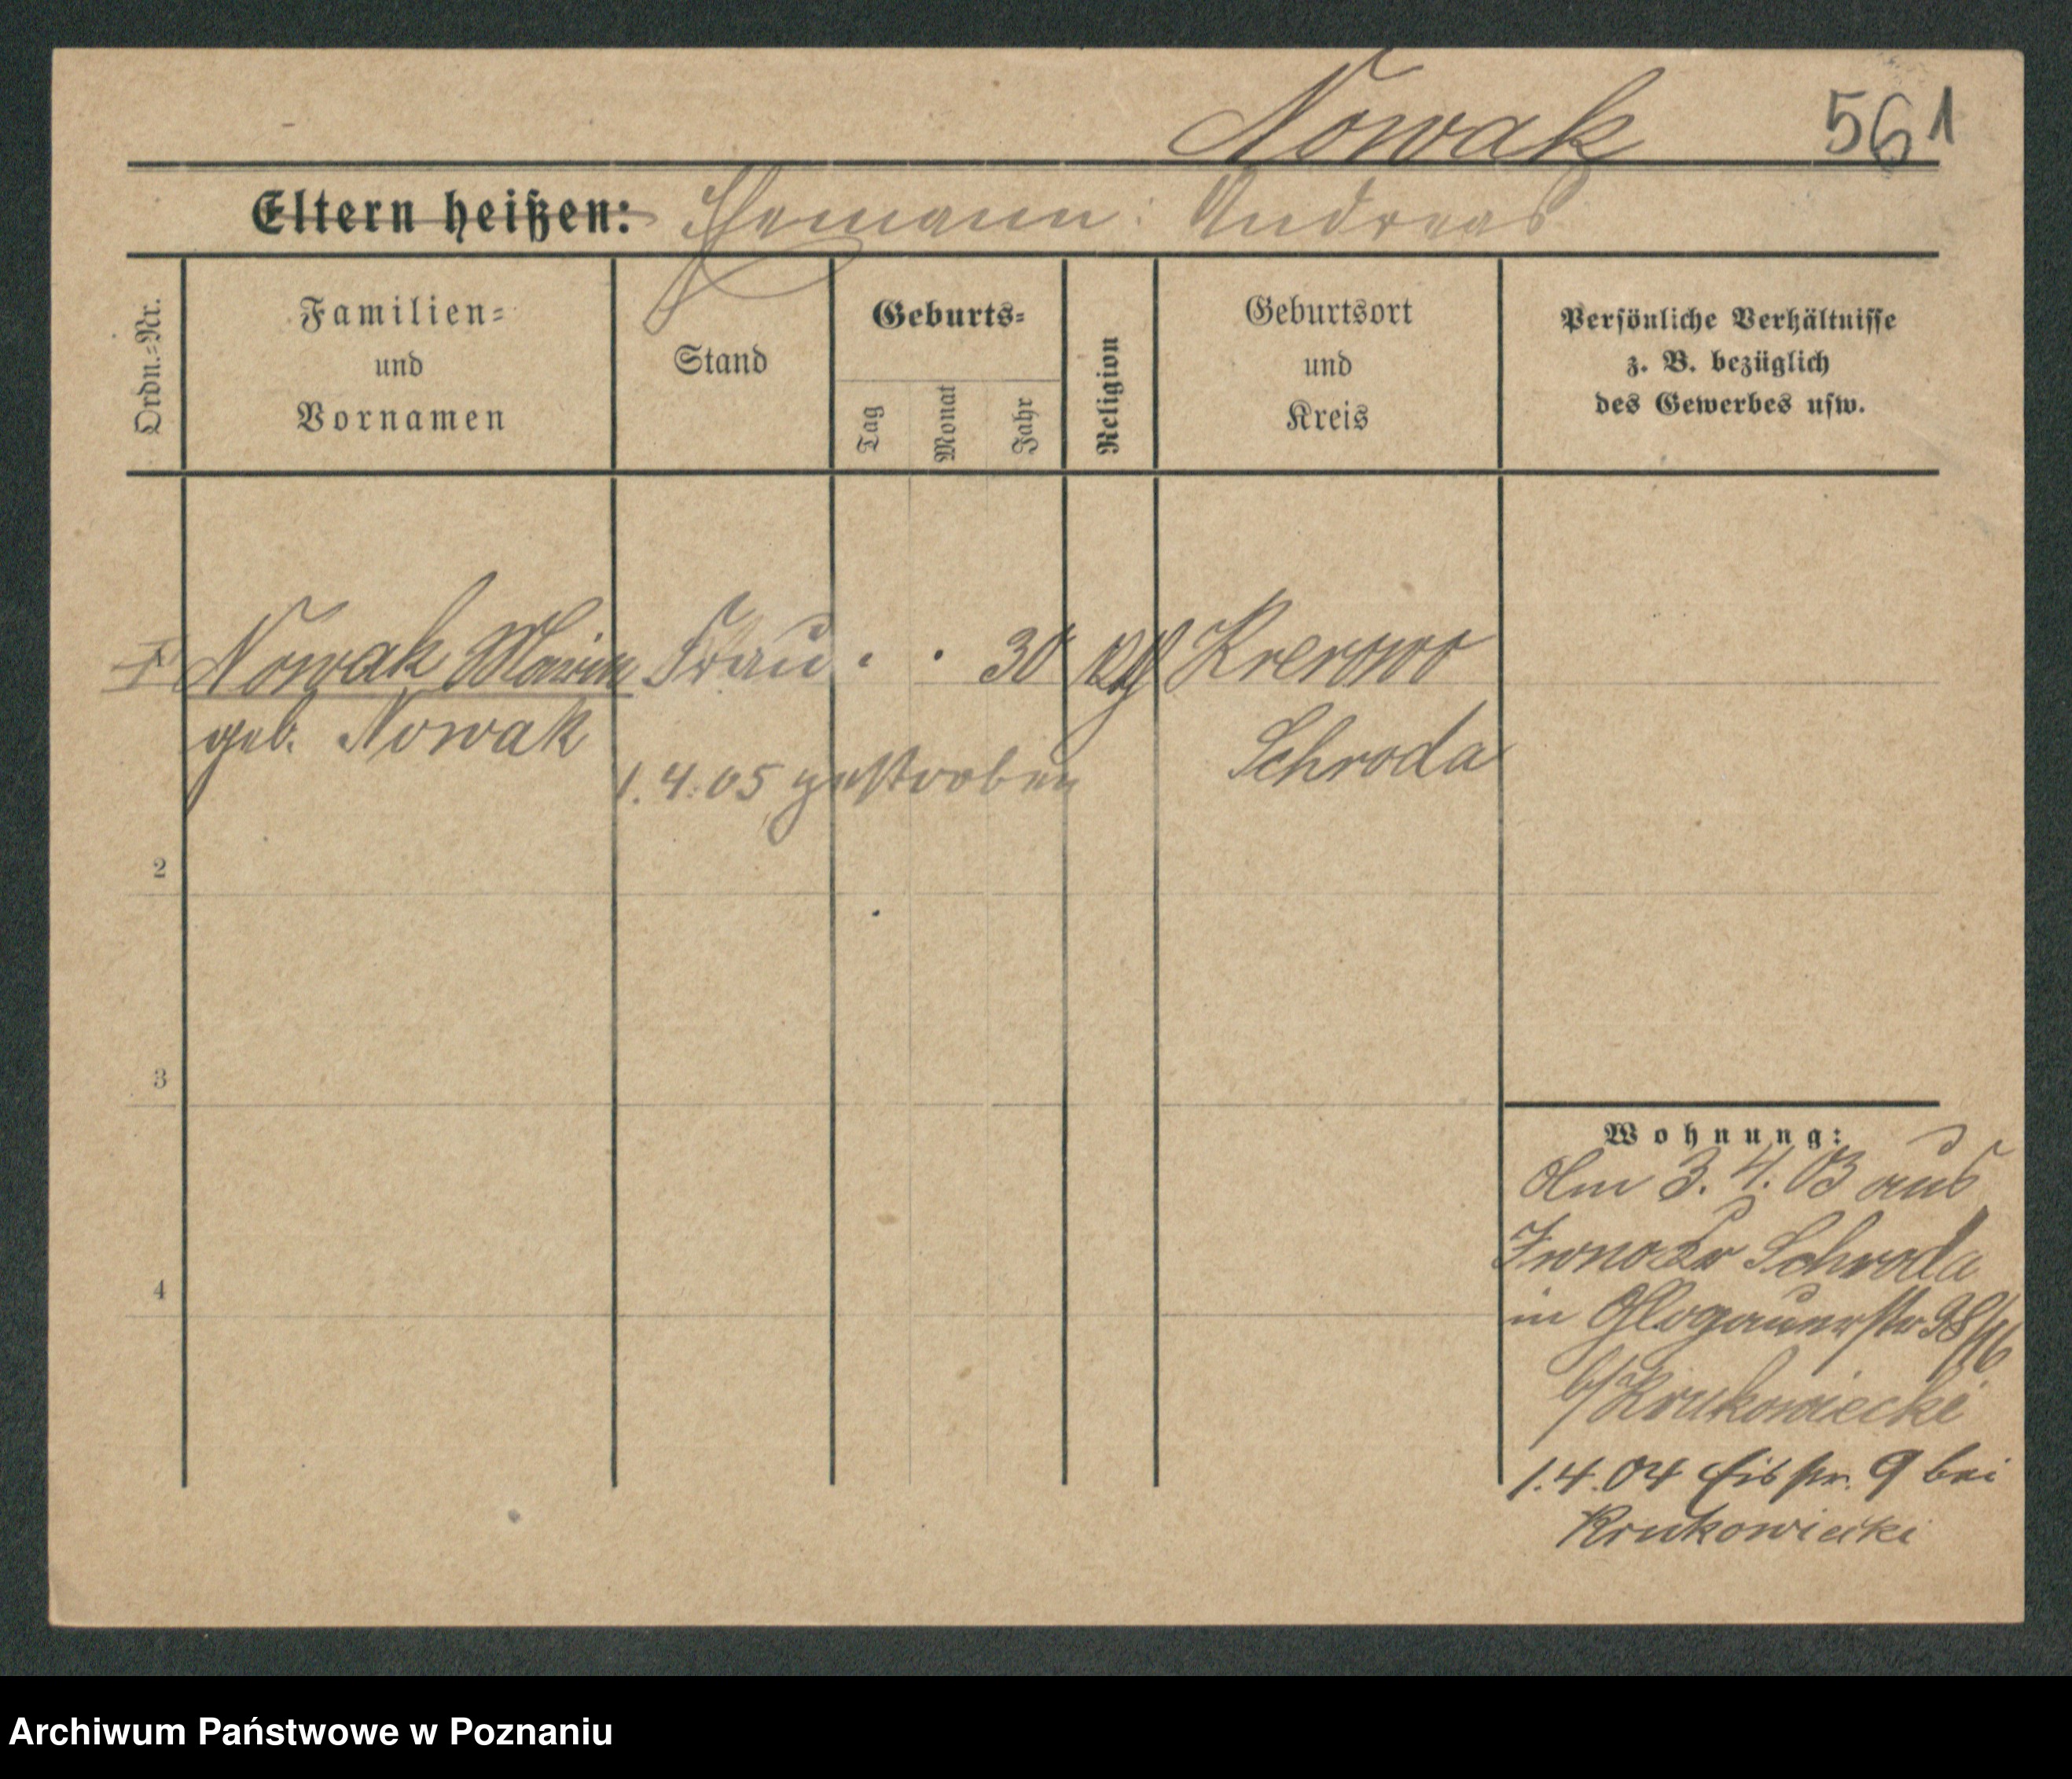 Nowak 561
Eltern heißen: Ehemann: Andreas
Ordn.=Nr.
Familien=
und
Vornamen
Stand
Geburts=
Tag
Monat
Jahr
Religion
Geburtsort
und
Kreis
Persönliche Verhältnisse
z. B. bezüglich
des Gewerbes usw.
Nowak Frau . . 30 Krerowo
geb. Nowak Schroda
1.4.05 gestorben
2
3
4
Wohnung:
Am 3.4.03 aus
Schroda
in Glogauerstr
b/Krukowiecki
1.4.04 9 bei
Krukowiecki
Archiwum Państwowe w Poznaniu